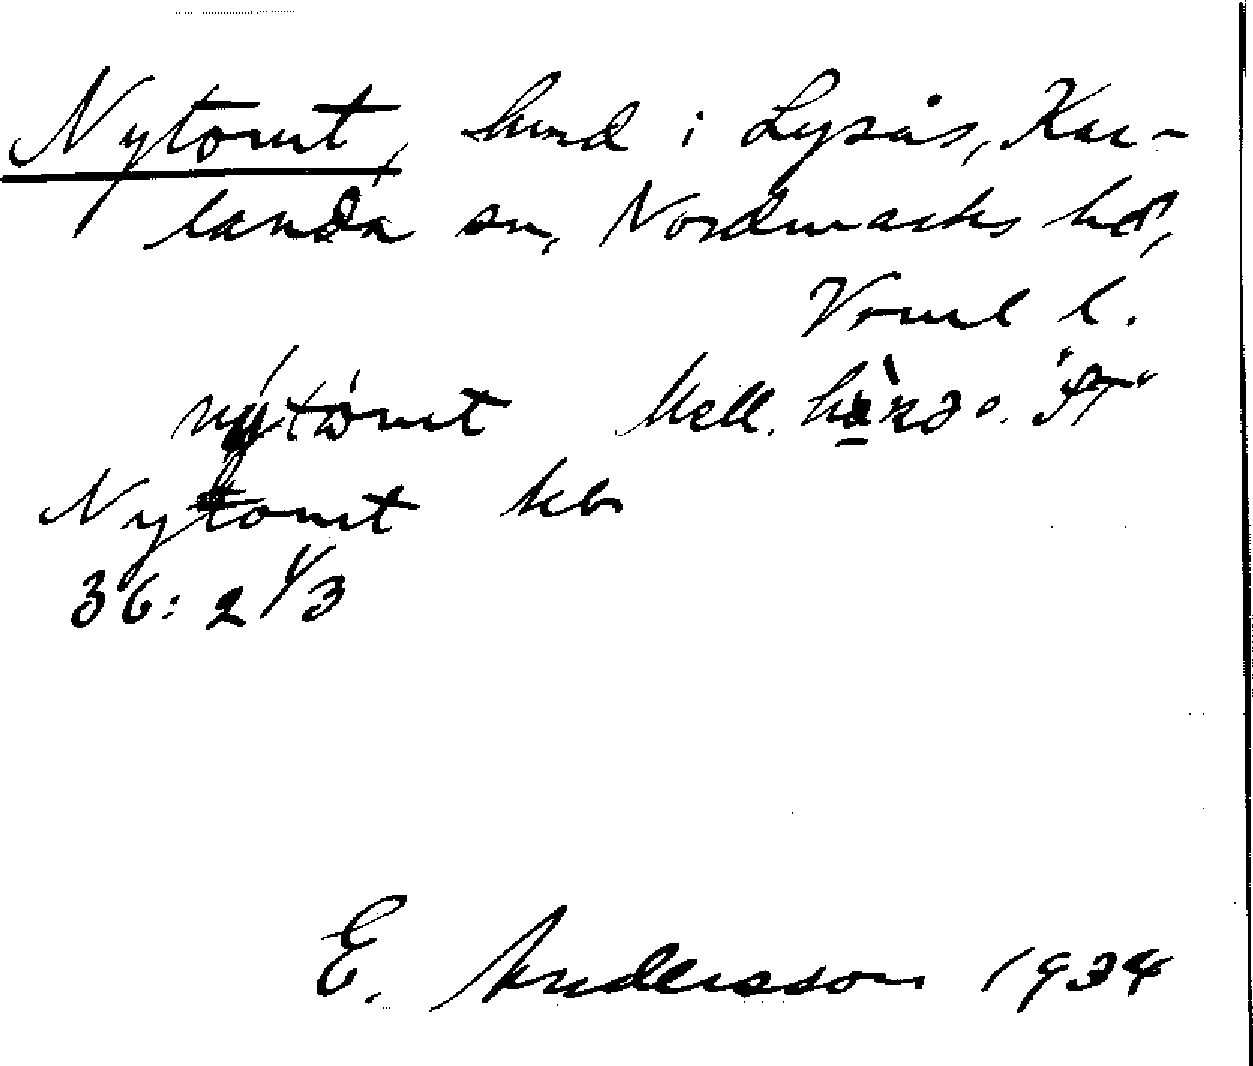 Nytomt, hmd i Lysås, Kar-
landa sn, Nordmarks hd,
Vrml l.
nytomt
Nytomt kb
36: 2 1/3
E. Andersson 1934